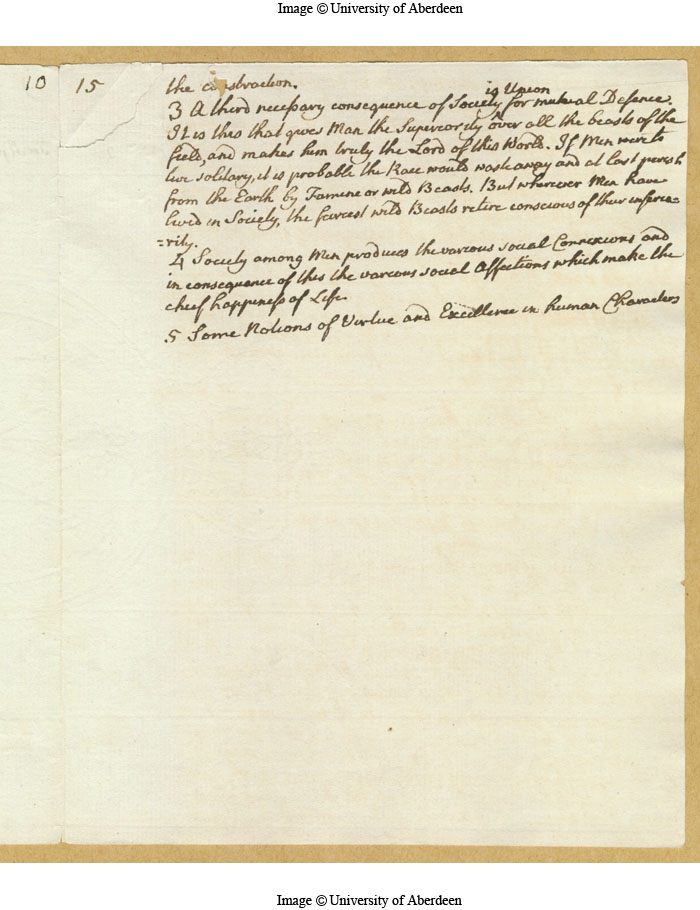 Image © University of Aberdeen
10 15
the construction.
is Union
3 A third necessary consequence of Society ^ for mutual Defence.
It is this that gives Man the Superiority over all the beasts of the
field, and makes him truly the Lord of this World. If Men were to
live solitary, it is probable the Race would waste away and at last perish
from the Earth by Famine or wild Beasts. But wherever Men have
lived in Society, the fiercest wild Beasts retire conscious of their inferio=
=rity.
4 Society among Men produces the various social Connexions and
in consequence of this the various social Affections which make the
chief happiness of Life.
5 Some Notions of Virtue and Excellence in human Characters
Image © University of Aberdeen